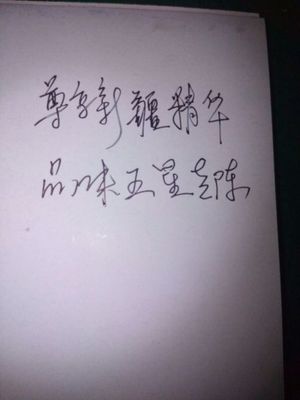 尊享新疆精华
品味五星老陈